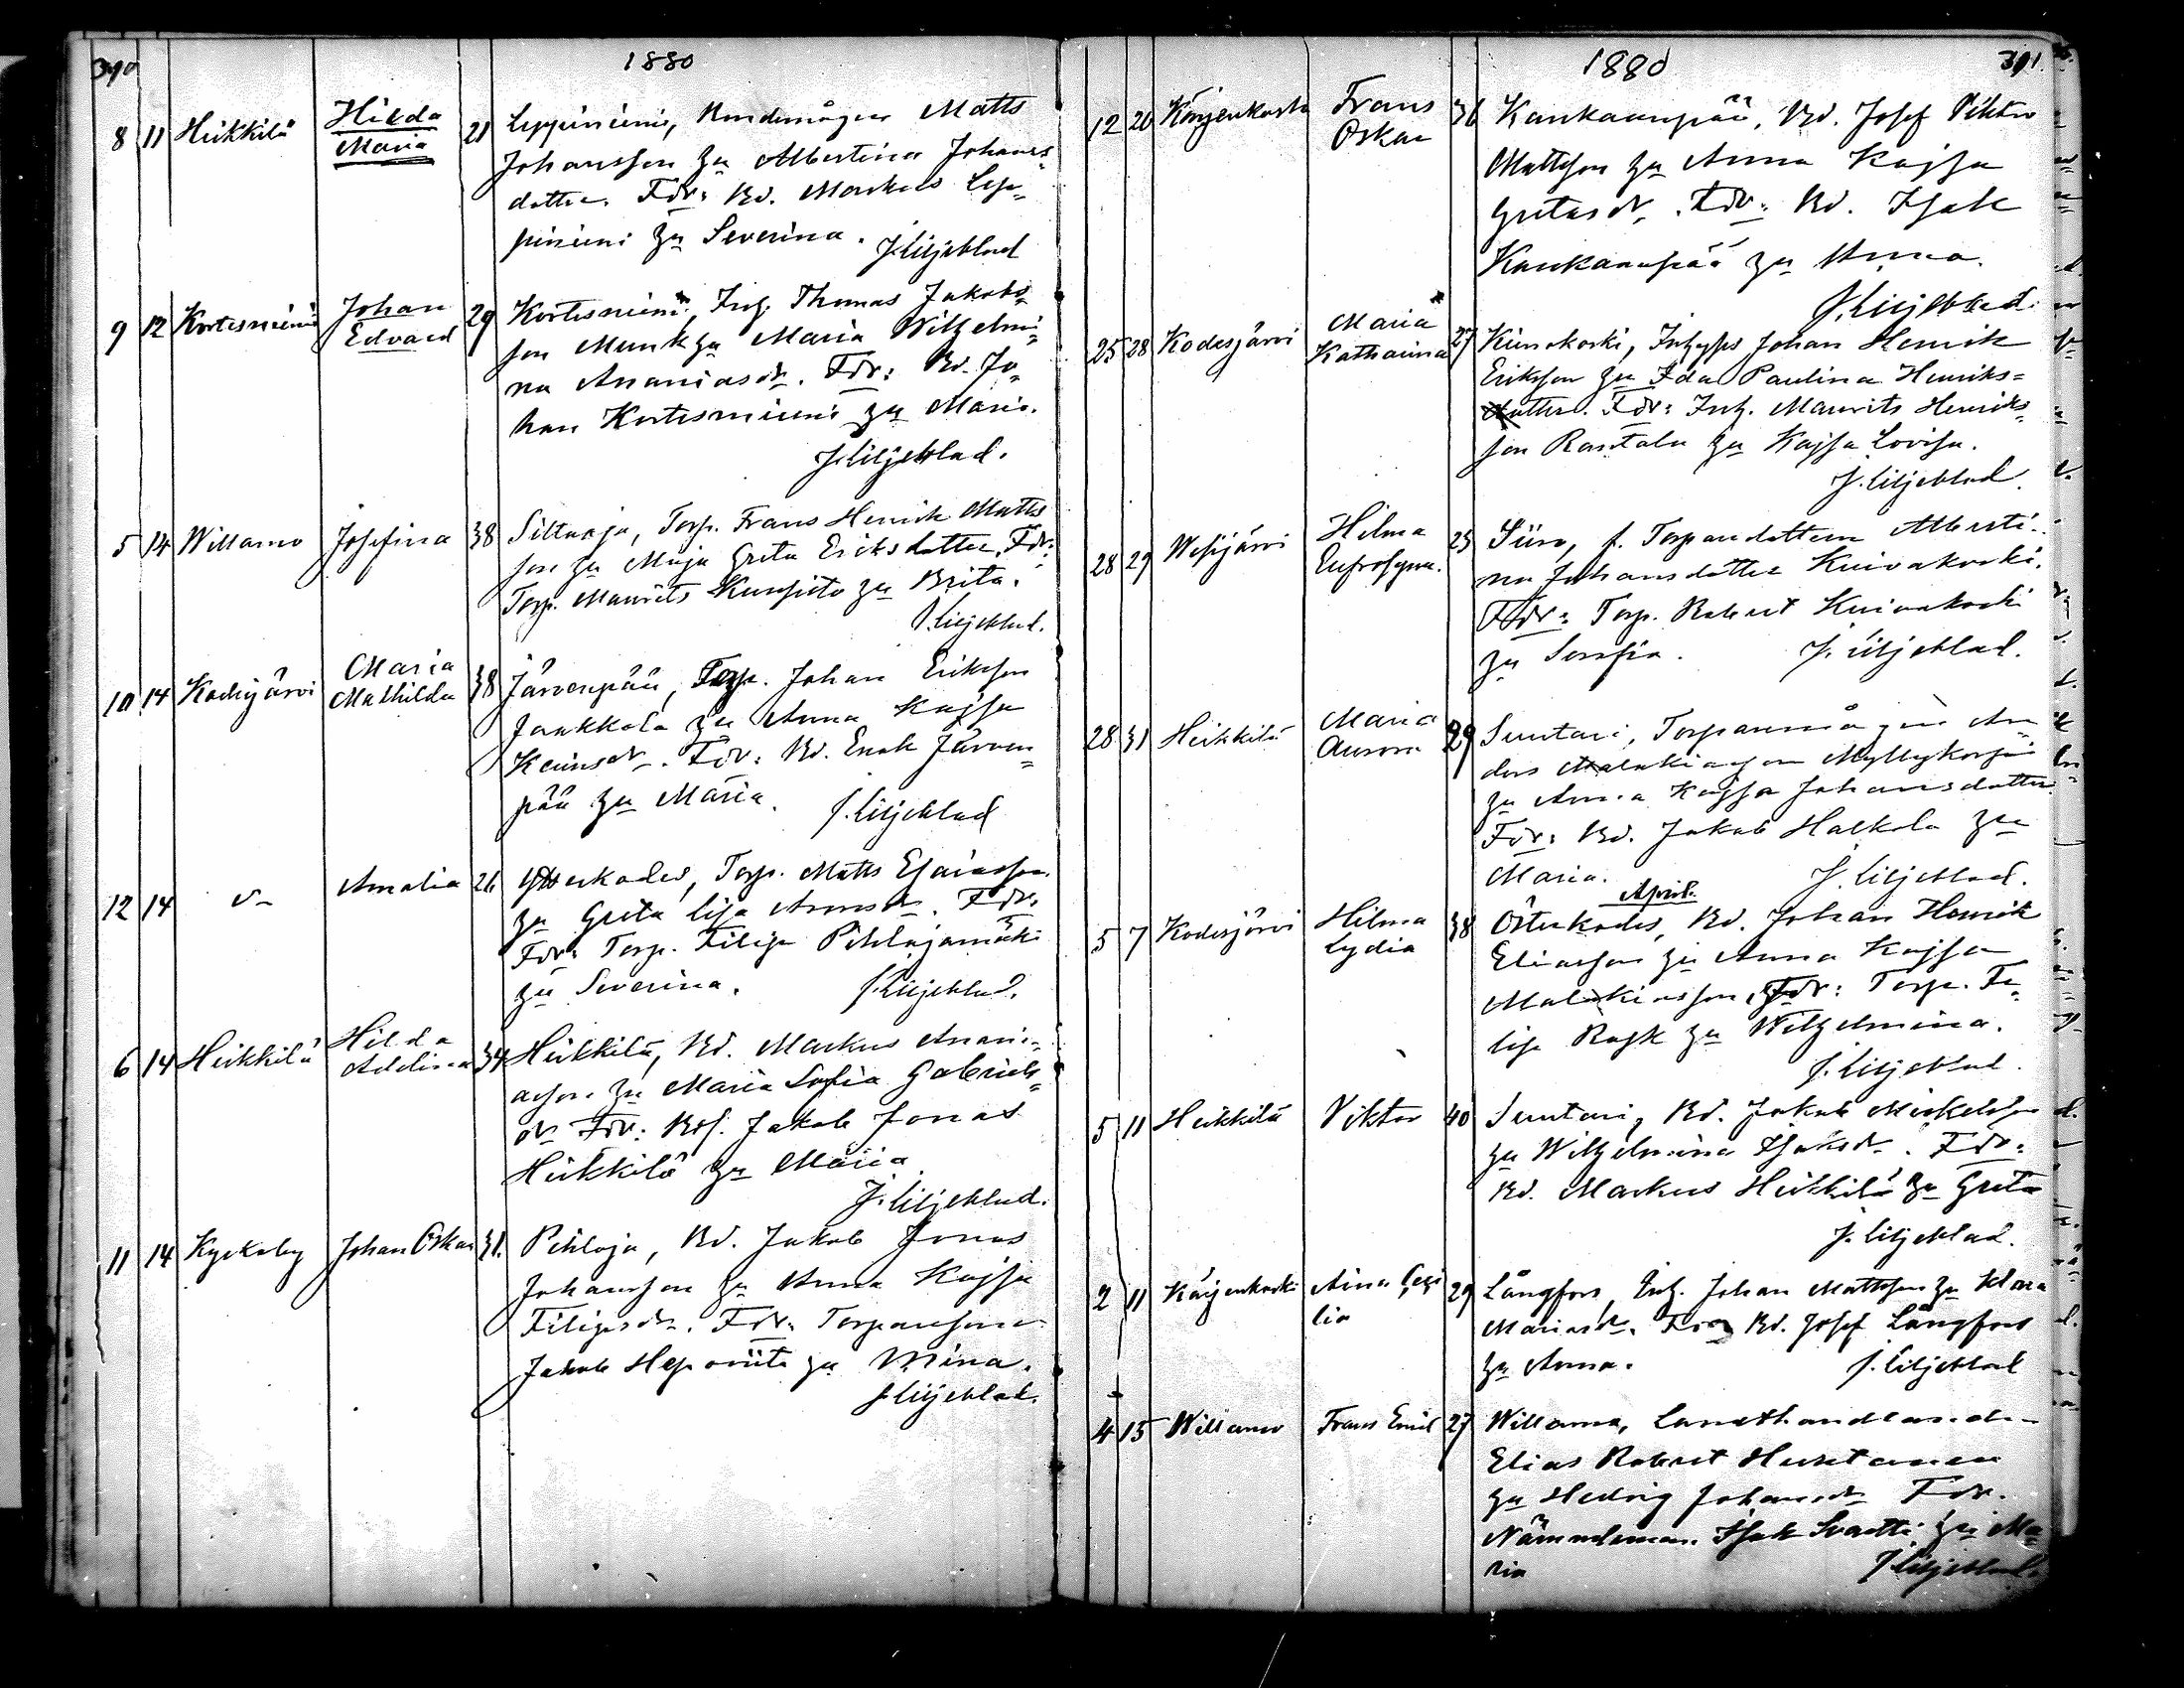 390
1880
8 11 Heikkilä Hilda Maria 21 Leppiniemi, Bondemågen Matts
Johansson & Albertina Johans-
dotter. Fdr: Bd. Markus Lep-
piniemi & Severina.
J. Liljeblad
9 12 Kortesniemi Johan Edvard 29 Kortesniemi, Inh. Thomas Jakobs-
son Munk & Maria Wilhelmi-
na Ananiasdr. Fdr: Bd. Jo-
han Kortesniemi & Maria.
J. Liljeblad.
5 14 Willamo Josefina 38 Siltaoja, Torp. Frans Henrik Matts
son & Maja Greta Eriksdotter, Fdr:
Torp. Maurits & Brita.
J. Liljeblad.
10 14 Kodesjärvi Maria Mathilda 38 Järvenpää, Torp. Johan Eriksson
Jaakkola & Anna Kajsa
Fdr: Bd. Enok Järven-
pää & Maria.
J. Liljeblad
12 14 d:o Amalia 26 Torp. Matts Esaiasson
& Greta Lisa Fdr.
Fdr: Torp. Filip Pihlajamäki
& Severina.
J. Liljeblad.
6 14 Heikkilä Hilda Addina 34 Heikkilä, Bd. Markus Anani-
asson & Maria Sofia Gabriels-
dr. Fdr: Jakob Jonas
Heikkilä & Maria
J. Liljeblad.
11 14 Kyrkoby Johan Oskar 31. Pihlaja, Bd. Jakob Jonas
Johansson & Anna Kajsa
Filipsdr. Fdr: Torparesonen
Jakob & Mina.
J. Liljeblad.
1880
391.
12 20 Kärjenkoski Frans Oskar 36 Kankaanpää, Bd. Josef Viktor
Mattsson & Anna Kajsa
Gretasdr. Fdr: Bd. Isak
Kankaanpää & Anna.
J. Liljeblad
25 28 Kodesjärvi Maria Katharina 27 Kuivakoski, Johan Henrik
Eriksson & Ida Paulina Henriks=
dotter. Fdr: Inh. Maurits Henriks-
son Rantala & Kajsa Lovisa.
J. Liljeblad.
28 29 Wesijärvi Hilma Eufrosyna. 23 Siiro, f. Torparedottern Alberti-
na Johansdotter Kuivakoski.
Fdr: Torp. Robert Kuivakoski
& Serafia.
J. Liljeblad.
28 31 Heikkilä Maria Aurora 29 Suutari, Torparemågen An-
ders Malakiasson Myllykorpi
& Anna Kajsa Johansdotter
Fdr: Bd. Jakob Halkola &
Maria.
J. Liljeblad.
April.
5 7 Kodesjärvi Hilma Lydia 38 Österkodes, Bd. Johan Henrik
Eliasson & Anna Kajsa
Malakiasson, Fdr: Torp. Fi-
lip Rask & Wilhelmina.
J. Liljeblad.
5 11 Heikkilä Viktor 40 Suutari, Bd. Jakob Mickelsson
& Wilhelmina Isaksdr. Fdr:
Bd. Markus Heikkilä & Greta
J. Liljeblad.
2 11 Kärjenkoski Aina Ceci lia 29 Långfors, Inh. Johan Mattsson & Klara
Mariasdr. Fdr: Bd. Josef Långfors
& Anna.
J. Liljeblad
4 15 Willamo Frans Emil 27 Willamo, Landthandlanden
Elias Robert
& Hedvig Johansdr Fdr.
Nämndeman Isak Svartti & Ma-
ria
J. Liljeblad.